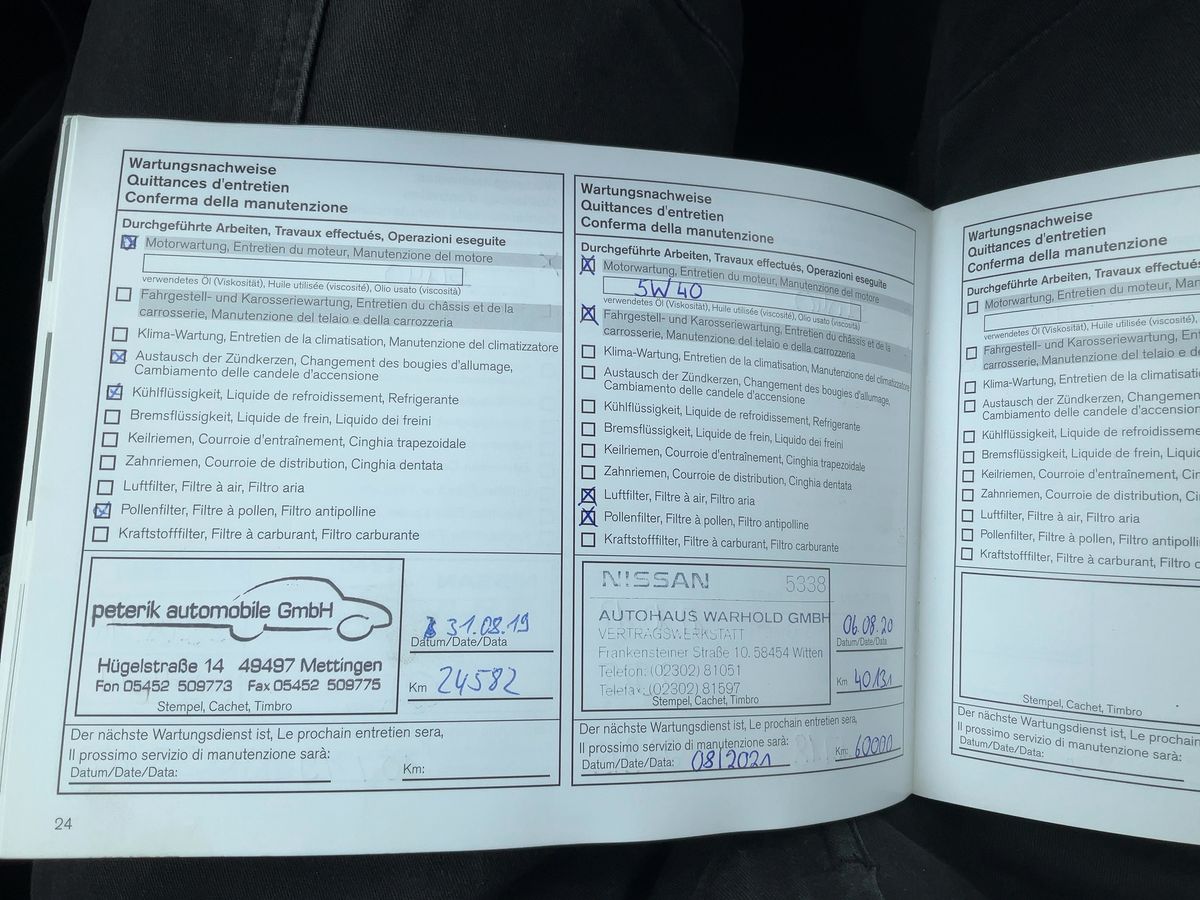 Wartungsnachweise
Quittances d'entretien
Conferma della manutenzione
Durchgeführte Arbeiten, Travaux effectués, Operazioni eseguite
Motorwartung, Entretien du moteur, Manutenzione del motore
verwendetes Öl (Viskosität), Huile utilisée (viscosité), Olio usato (viscosità)
Fahrgestell- und Karosseriewartung, Entretien du châssis et de la
carrosserie, Manutenzione del telaio e della carrozzeria
Klima-Wartung, Entretien de la climatisation, Manutenzione del climatizzatore
Austausch der Zündkerzen, Changement des bougies d'allumage,
Cambiamento delle candele d'accensione
Kühlflüssigkeit, Liquide de refroidissement, Refrigerante
Bremsflüssigkeit, Liquide de frein, Liquido dei freini
Keilriemen, Courroie d'entraînement, Cinghia trapezoidale
Zahnriemen, Courroie de distribution, Cinghia dentata
Luftfilter, Filtre à air, Filtro aria
Pollenfilter, Filtre à pollen, Filtro antipolline
Kraftstofffilter, Filtre à carburant, Filtro carburante
peterik automobile GmbH
Hügelstraße 14 49497 Mettingen
Fon 05452 509773 Fax 05452 509775
Stempel, Cachet, Timbro
31.08.19
Datum/Date/Data
Km 24582
Der nächste Wartungsdienst ist, Le prochain entretien sera,
Il prossimo servizio di manutenzione sarà:
Datum/Date/Data: Km:
24
Wartungsnachweise
Quittances d'entretien
Conferma della manutenzione
Durchgeführte Arbeiten, Travaux effectués, Operazioni eseguite
Motorwartung, Entretien du moteur, Manutenzione del motore
5W40
verwendetes Öl (Viskosität), Huile utilisée (viscosité), Olio usato (viscosità)
Fahrgestell- und Karosseriewartung, Entretien du châssis et de la
carrosserie, Manutenzione del telaio e della carrozzeria
Klima-Wartung, Entretien de la climatisation, Manutenzione del climatizzatore
Austausch der Zündkerzen, Changement des bougies d'allumage,
Cambiamento delle candele d'accensione
Kühlflüssigkeit, Liquide de refroidissement, Refrigerante
Bremsflüssigkeit, Liquide de frein, Liquido dei freini
Keilriemen, Courroie d'entraînement, Cinghia trapezoidale
Zahnriemen, Courroie de distribution, Cinghia dentata
Luftfilter, Filtre à air, Filtro aria
Pollenfilter, Filtre à pollen, Filtro antipolline
Kraftstofffilter, Filtre à carburant, Filtro carburante
NISSAN 5338
AUTOHAUS WARHOLD GMBH
VERTRAGSWERKSTATT
Frankensteiner Straße 10. 58454 Witten
Telefon: (02302) 81051
Telefax: (02302) 81597
Stempel, Cachet, Timbro
06.08.20
Datum/Date/Data
Km 40131
Der nächste Wartungsdienst ist, Le prochain entretien sera,
Il prossimo servizio di manutenzione sarà:
Datum/Date/Data: 08/2021 Km: 60000
Wartungsnachweise
Quittances d'entretien
Conferma della manutenzione
Durchgeführte Arbeiten, Travaux effectués
Motorwartung, Entretien du moteur,
verwendetes Öl (Viskosität), Huile utilisée (viscosité),
Fahrgestell- und Karosseriewartung, Entretien
carrosserie, Manutenzione del telaio e della
Klima-Wartung, Entretien de la
Austausch der Zündkerzen, Changement
Cambiamento delle candele
Kühlflüssigkeit, Liquide de
Bremsflüssigkeit, Liquide de frein,
Keilriemen, Courroie d'entraînement,
Zahnriemen, Courroie de distribution,
Luftfilter, Filtre à air, Filtro aria
Pollenfilter, Filtre à pollen, Filtro
Kraftstofffilter, Filtre à carburant, Filtro
Stempel, Cachet, Timbro
Der nächste Wartungsdienst ist, Le prochain
Il prossimo servizio di manutenzione sarà:
Datum/Date/Data: